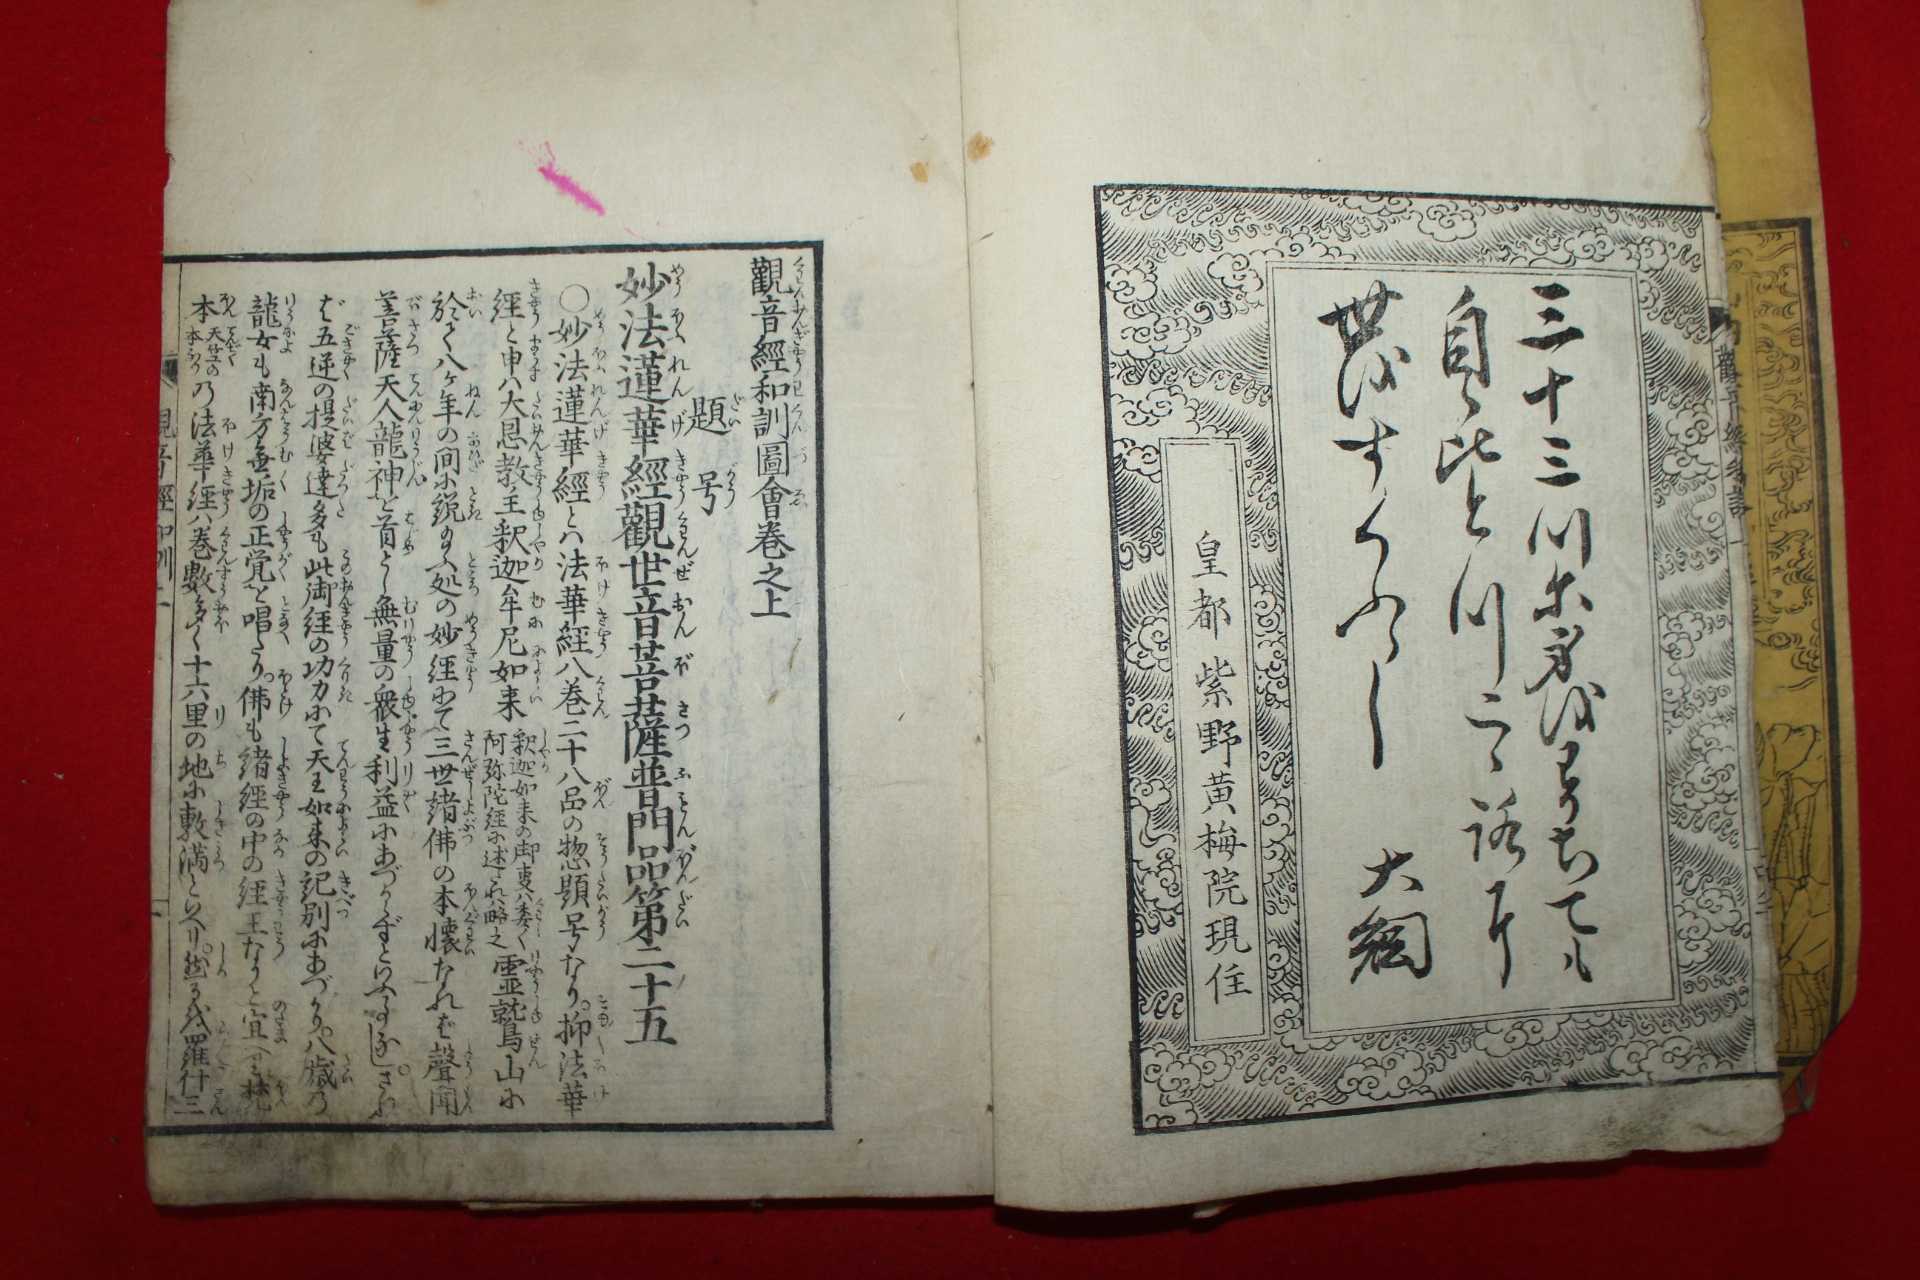 三十三川尓身をわかちても
自他と川二路耳
世をすくふらし
大綱
皇都紫野黄梅院現住
觀音經和訓圖會巻之上
題号
妙法蓮華經觀世音菩薩普門品第二十五
○妙法蓮華經とハ法華經八巻二十八品の惣題号なり。抑法華
經と申ハ大恩教主釈迦牟尼如来
釈迦如来の御事ハ委く
阿弥陀経に述され略之
霊鷲山に
於て八ケ年の间に説給ふ処の妙經にて三世諸佛の本懐なれば聲聞
菩薩天人龍神を首とし無量の衆生利益にあづからずといふ事なし。され
ば五逆の提婆達多も此御經の功力にて天王如来の記別にあづかり。八歳の
龍女も南方無垢の正覚を唱たり。佛も諸經の中の經王なりと宣へり梵
本
天竺の
本なり
乃法華經ハ巻數多く十六里の地に敷満といへり。然るを羅什三